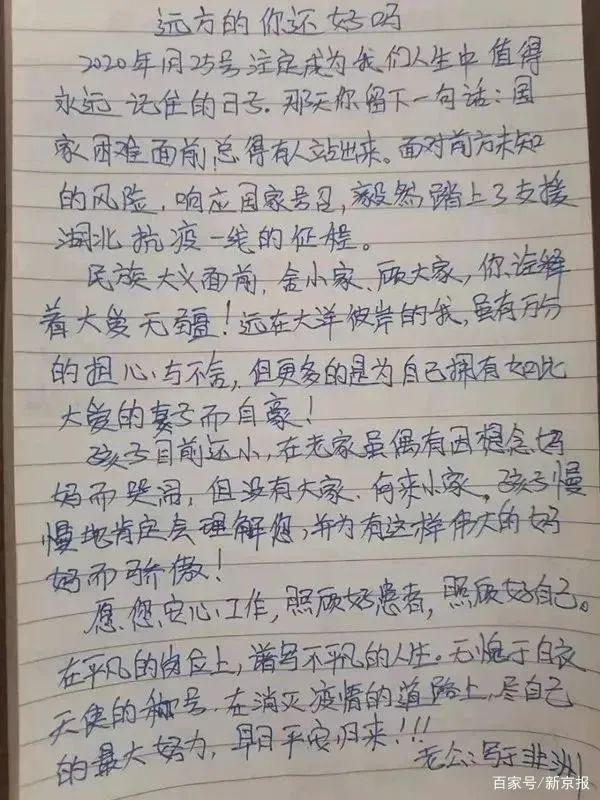 远方的你还好吗
2020年1月25号注定成为我们人生中值得
永远记住的日号.那天你留下一句话:国
家困难面前,总得有人站出来。面对前方未知
的风险,响应国家号召,毅然踏上了支援
湖北抗疫一线的征程。
民族大义面前,舍小家、顾大家,你诠释
着大爱无疆!远在大洋彼岸的我,虽有万分
的担心与不舍,但更多的是为自己拥有如此
大爱的妻子而自豪!
孩子目前还小,在老家虽偶有因想念妈
妈而哭闹,但没有大家.何来小家。孩子慢
慢地肯定会理解您,并为有这样伟大的妈
妈而骄傲!
愿您安心工作,照顾好患者,照顾好自己。
在平凡的岗位上,谱写不平凡的人生。无愧于白衣
天使的称号.在消灭疫情的道路上,尽自己
的最大努力,早日平安归来!!!
老公:写于非洲
百家号/新京报